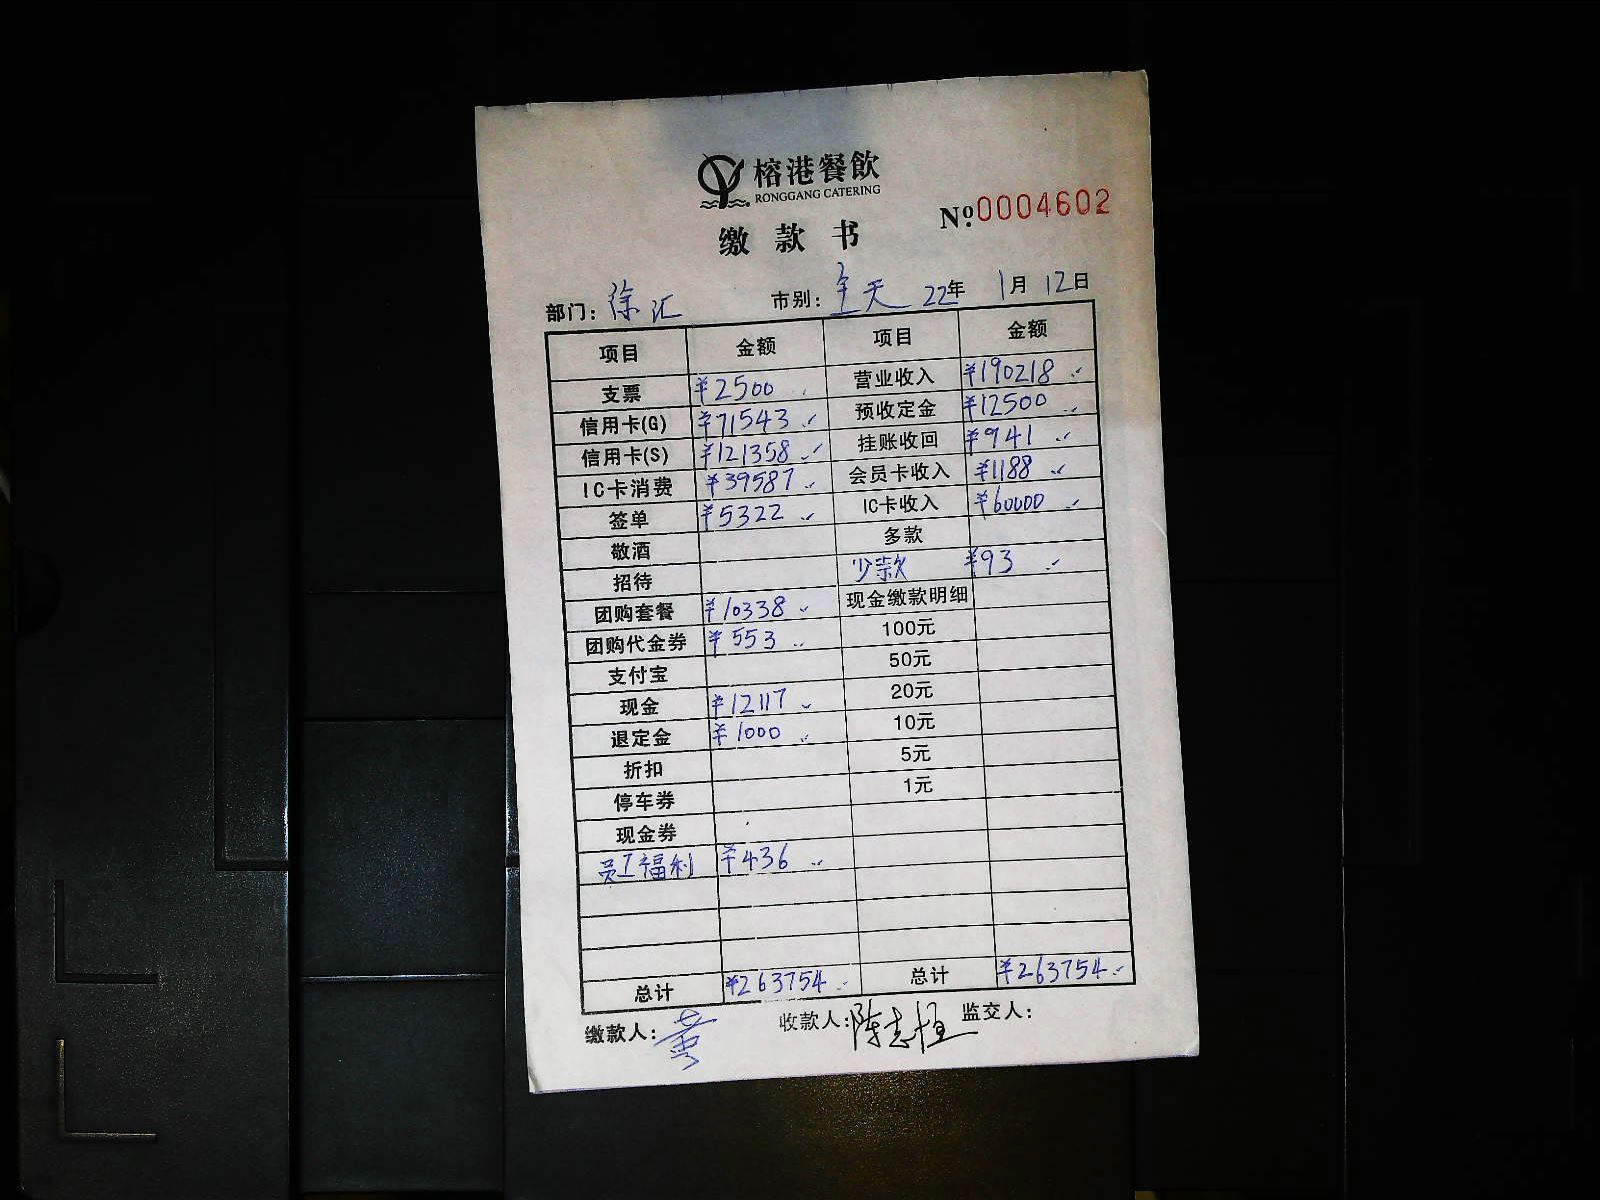 榕港餐飲
RONGGANG CATERING
缴款书
Nº.0004602
部门：徐汇 市别：全天 22年 1月12日
项目 金额 项目 金额
支票 ¥2500 营业收入 ¥190218
信用卡(G) ¥71543 预收定金 ¥12500
信用卡(S) ¥121358 挂账收回 ¥941
IC卡消费 ¥39587 会员卡收入 ¥1188
签单 ¥5322 IC卡收入 ¥60000
敬酒 多款
招待 少款 ¥93
团购套餐 ¥10338 现金缴款明细
团购代金券 ¥553 100元
支付宝 50元
现金 ¥12117 20元
退定金 ¥1000 10元
折扣 5元
停车券 1元
现金券
员工福利 ¥436
总计 ¥263754 总计 ¥263754
缴款人： 收款人：陈志恒 监交人：